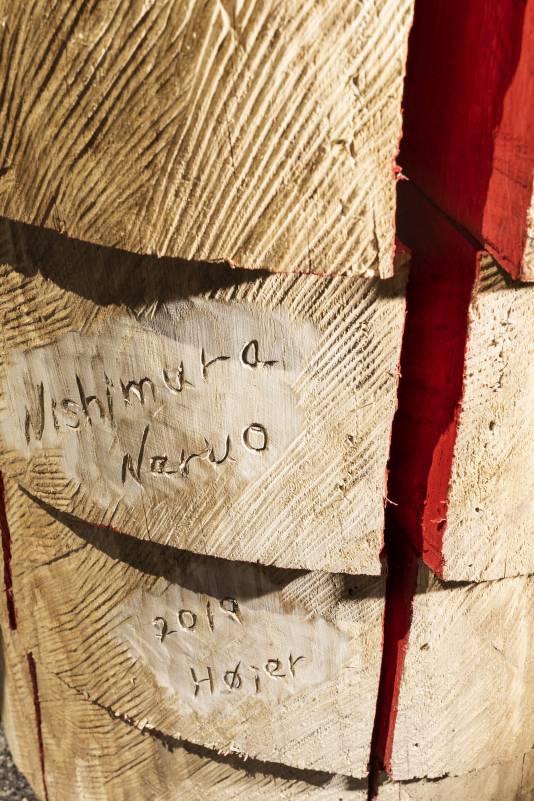 Nishimura
Naruo
2019
Højer